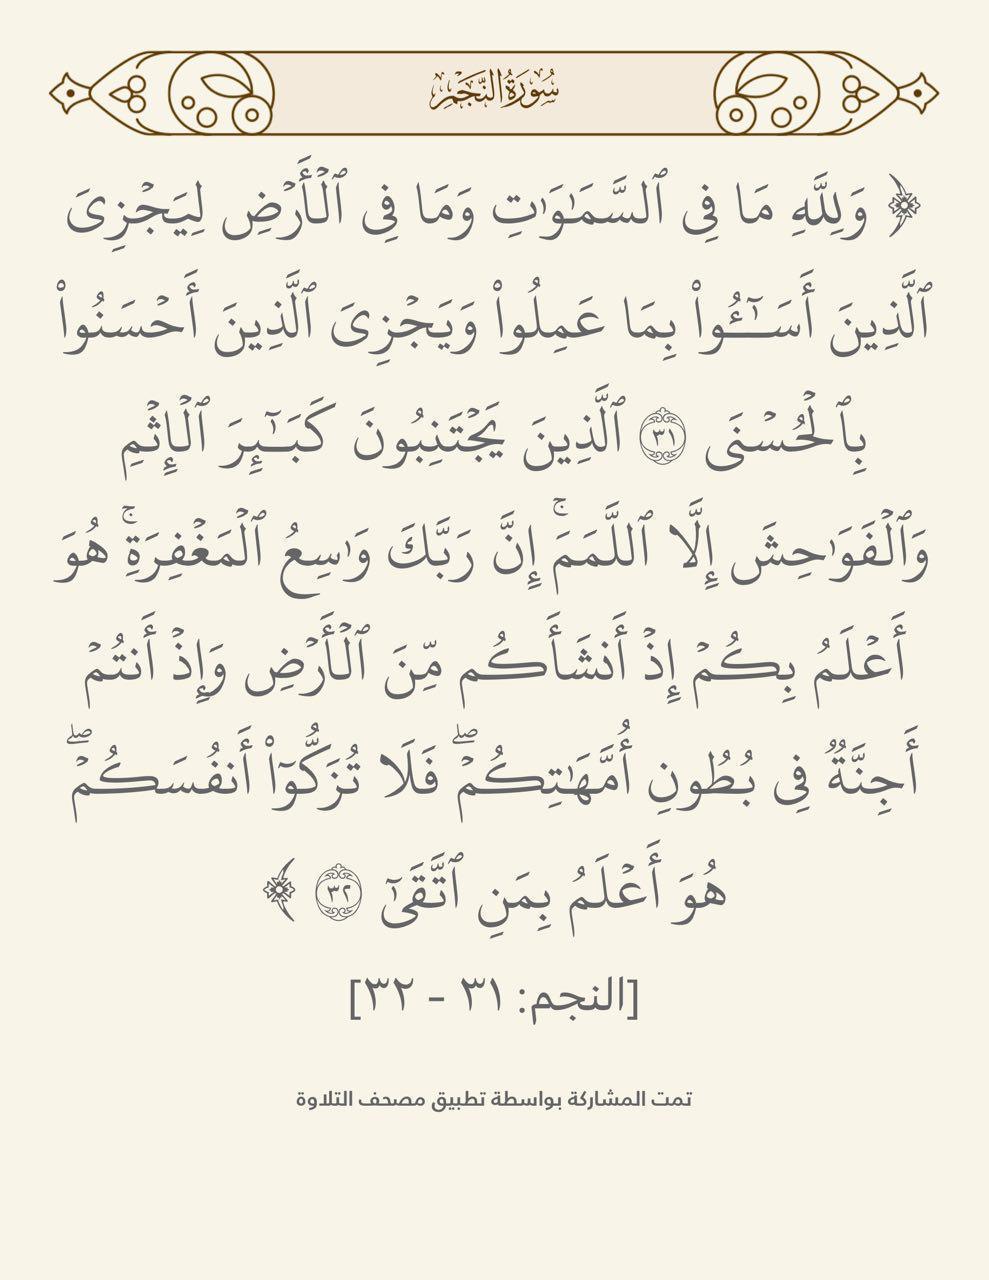 سُورَةُ النَّجْمِ
﴿ وَلِلَّهِ مَا فِى ٱلسَّمَـٰوَٰتِ وَمَا فِى ٱلْأَرْضِ لِيَجْزِىَ
ٱلَّذِينَ أَسَـٰٓـُٔوا۟ بِمَا عَمِلُوا۟ وَيَجْزِىَ ٱلَّذِينَ أَحْسَنُوا۟
بِٱلْحُسْنَى ٣١ ٱلَّذِينَ يَجْتَنِبُونَ كَبَـٰٓئِرَ ٱلْإِثْمِ
وَٱلْفَوَٰحِشَ إِلَّا ٱللَّمَمَ ۚ إِنَّ رَبَّكَ وَٰسِعُ ٱلْمَغْفِرَةِ ۚ هُوَ
أَعْلَمُ بِكُمْ إِذْ أَنشَأَكُم مِّنَ ٱلْأَرْضِ وَإِذْ أَنتُمْ
أَجِنَّةٌ فِى بُطُونِ أُمَّهَـٰتِكُمْ ۖ فَلَا تُزَكُّوٓا۟ أَنفُسَكُمْ ۖ
هُوَ أَعْلَمُ بِمَنِ ٱتَّقَىٰٓ ٣٢ ﴾
[النجم: ٣١ - ٣٢]
تمت المشاركة بواسطة تطبيق مصحف التلاوة